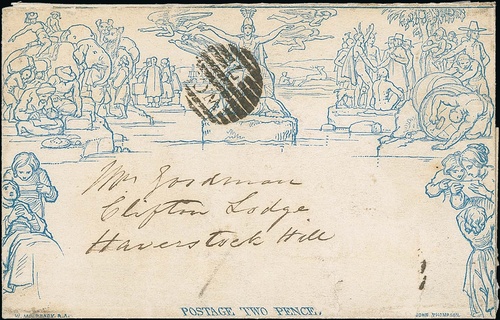 Mrs Goodman
Clifton Lodge
Haverstock Hill
POSTAGE TWO PENCE.
W. MULREADY, R.A.
JOHN THOMPSON